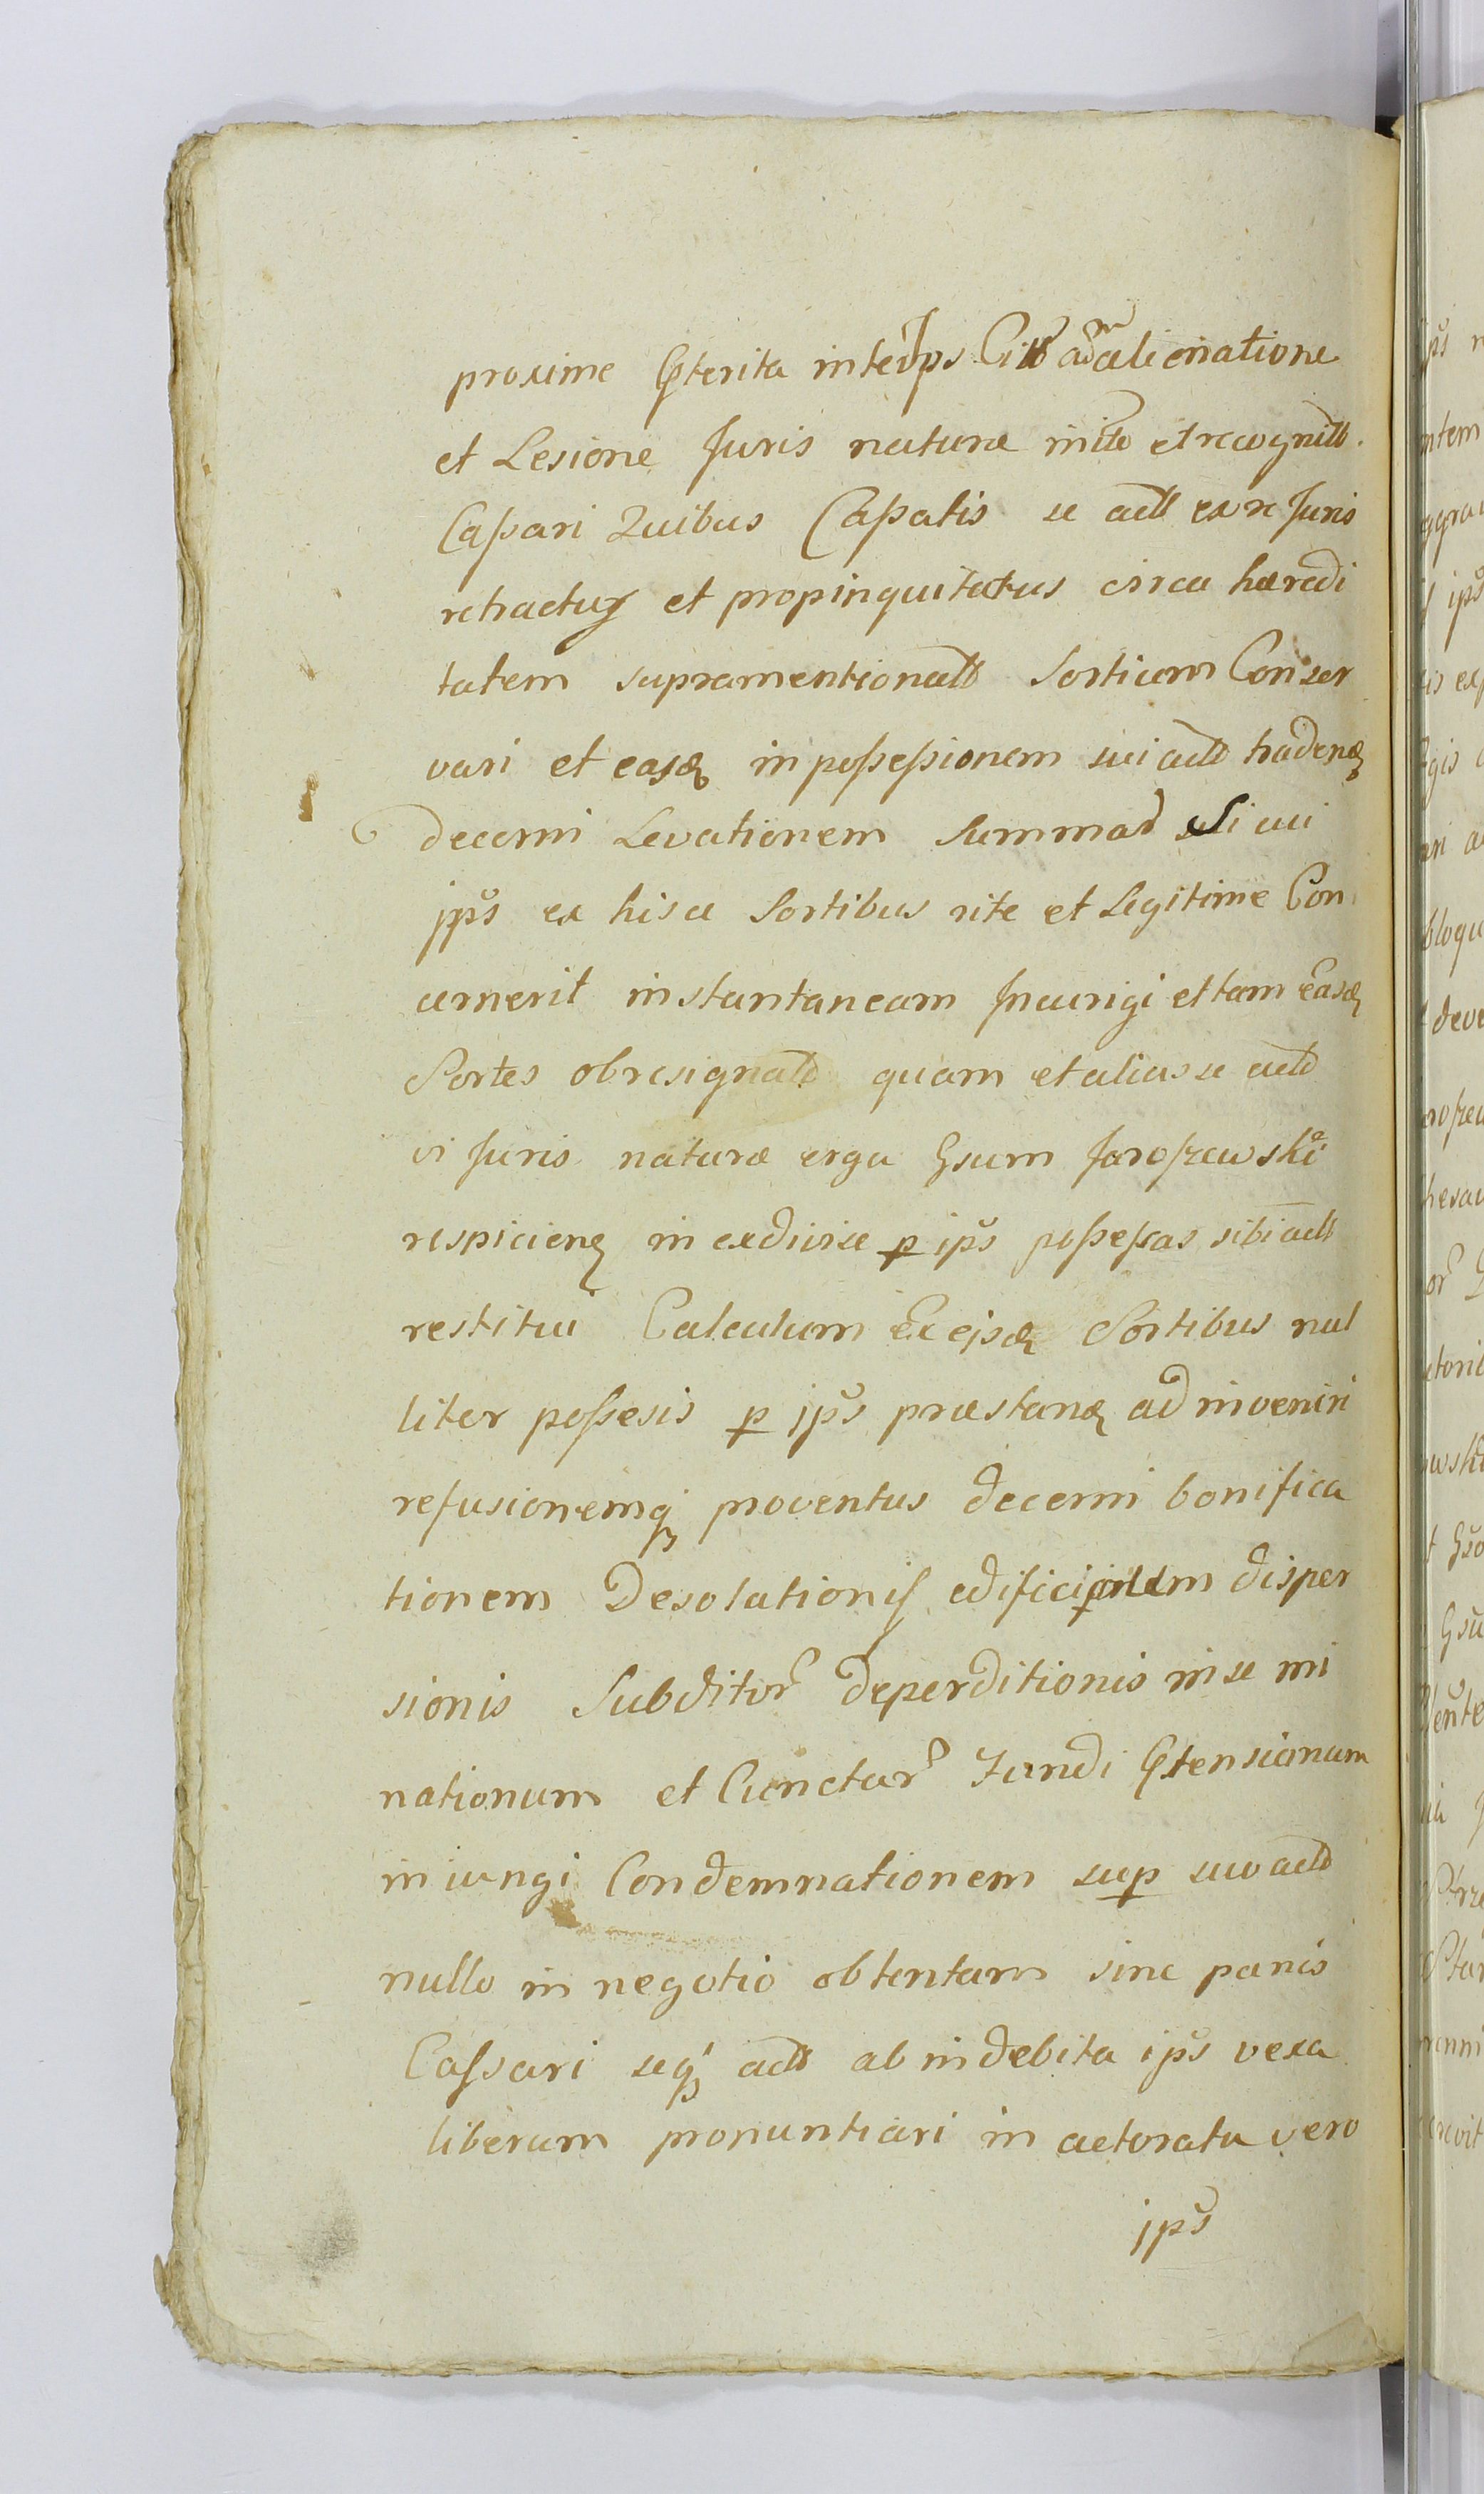 proxime Pterita inter Jps Citt adm alienatione
et Lesione Juris naturæ initt et recognitt.
Cassari Quibus Cassatis se actt ex re Juris
retractus et propinquitatus circa hæredi
tatem supramentionatt Sortium Conser
vari et easq in possessionem sui actt tradenq
decerni Levationem Summar Si cui
jpŝ ex hisce Sortibus rite et Legitime Con
cernerit instantaneam Jnjungi et tam easq
Sortes obresignatt quam et alias se actt
vi Juris naturæ erga Gsum Jaroszewski
respicienq in exdivise p ipŝ possessas sibi actt
restitui Calculum Ex ejsq Sortibus nul
liter possesis p jpŝ præstanq adinveniri
refusionemq proventus decerni bonifica
tionem Desolationis ædificiorum disper
sionis Subditor deperditionis inse mi
nationum et Cunctar Fundi Ptensionum
iniungi Condemnationem sup suo actt
nullo in negotio obtentam sine pænis
Cassari seq actt ab indebita ipŝ vexa
liberum pronuntiari in actoratu vero
jpŝ